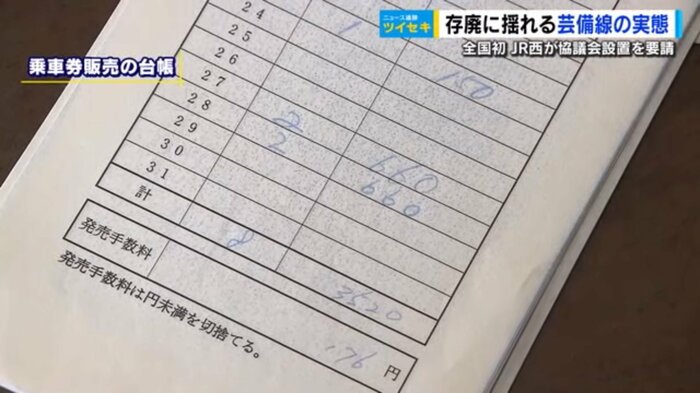 ニュース追跡
ツイセキ
存廃に揺れる芸備線の実態
全国初 JR西が協議会設置を要請
乗車券販売の台帳
24
25 1 150
26
27
28 2 660
29 2 660
30
31
計 8 3520
発売手数料 176 円
発売手数料は円未満を切捨てる。